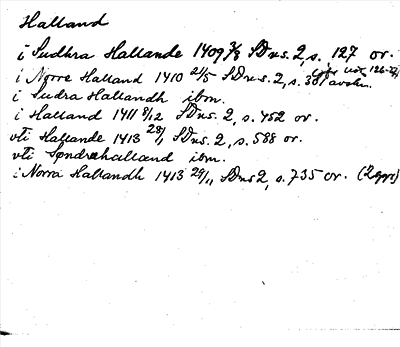 Halland
i Sudhra Hallande 1409 3/8 SD ns. 2, s. 127 or.
i Norre Halland 1410 21/5 SD ns. 2, s. 381 avskr.
i Sudra Hallandh ibm.
i Halland 1411 8/12 SD ns. 2, s. 452 or.
vti Hallande 1413 28/1 SD ns. 2, s. 588 or.
vti Søndrehalland ibm.
i Norra Hallandh 1413 29/11 SD ns 2, s. 735 or. (2 ggr)